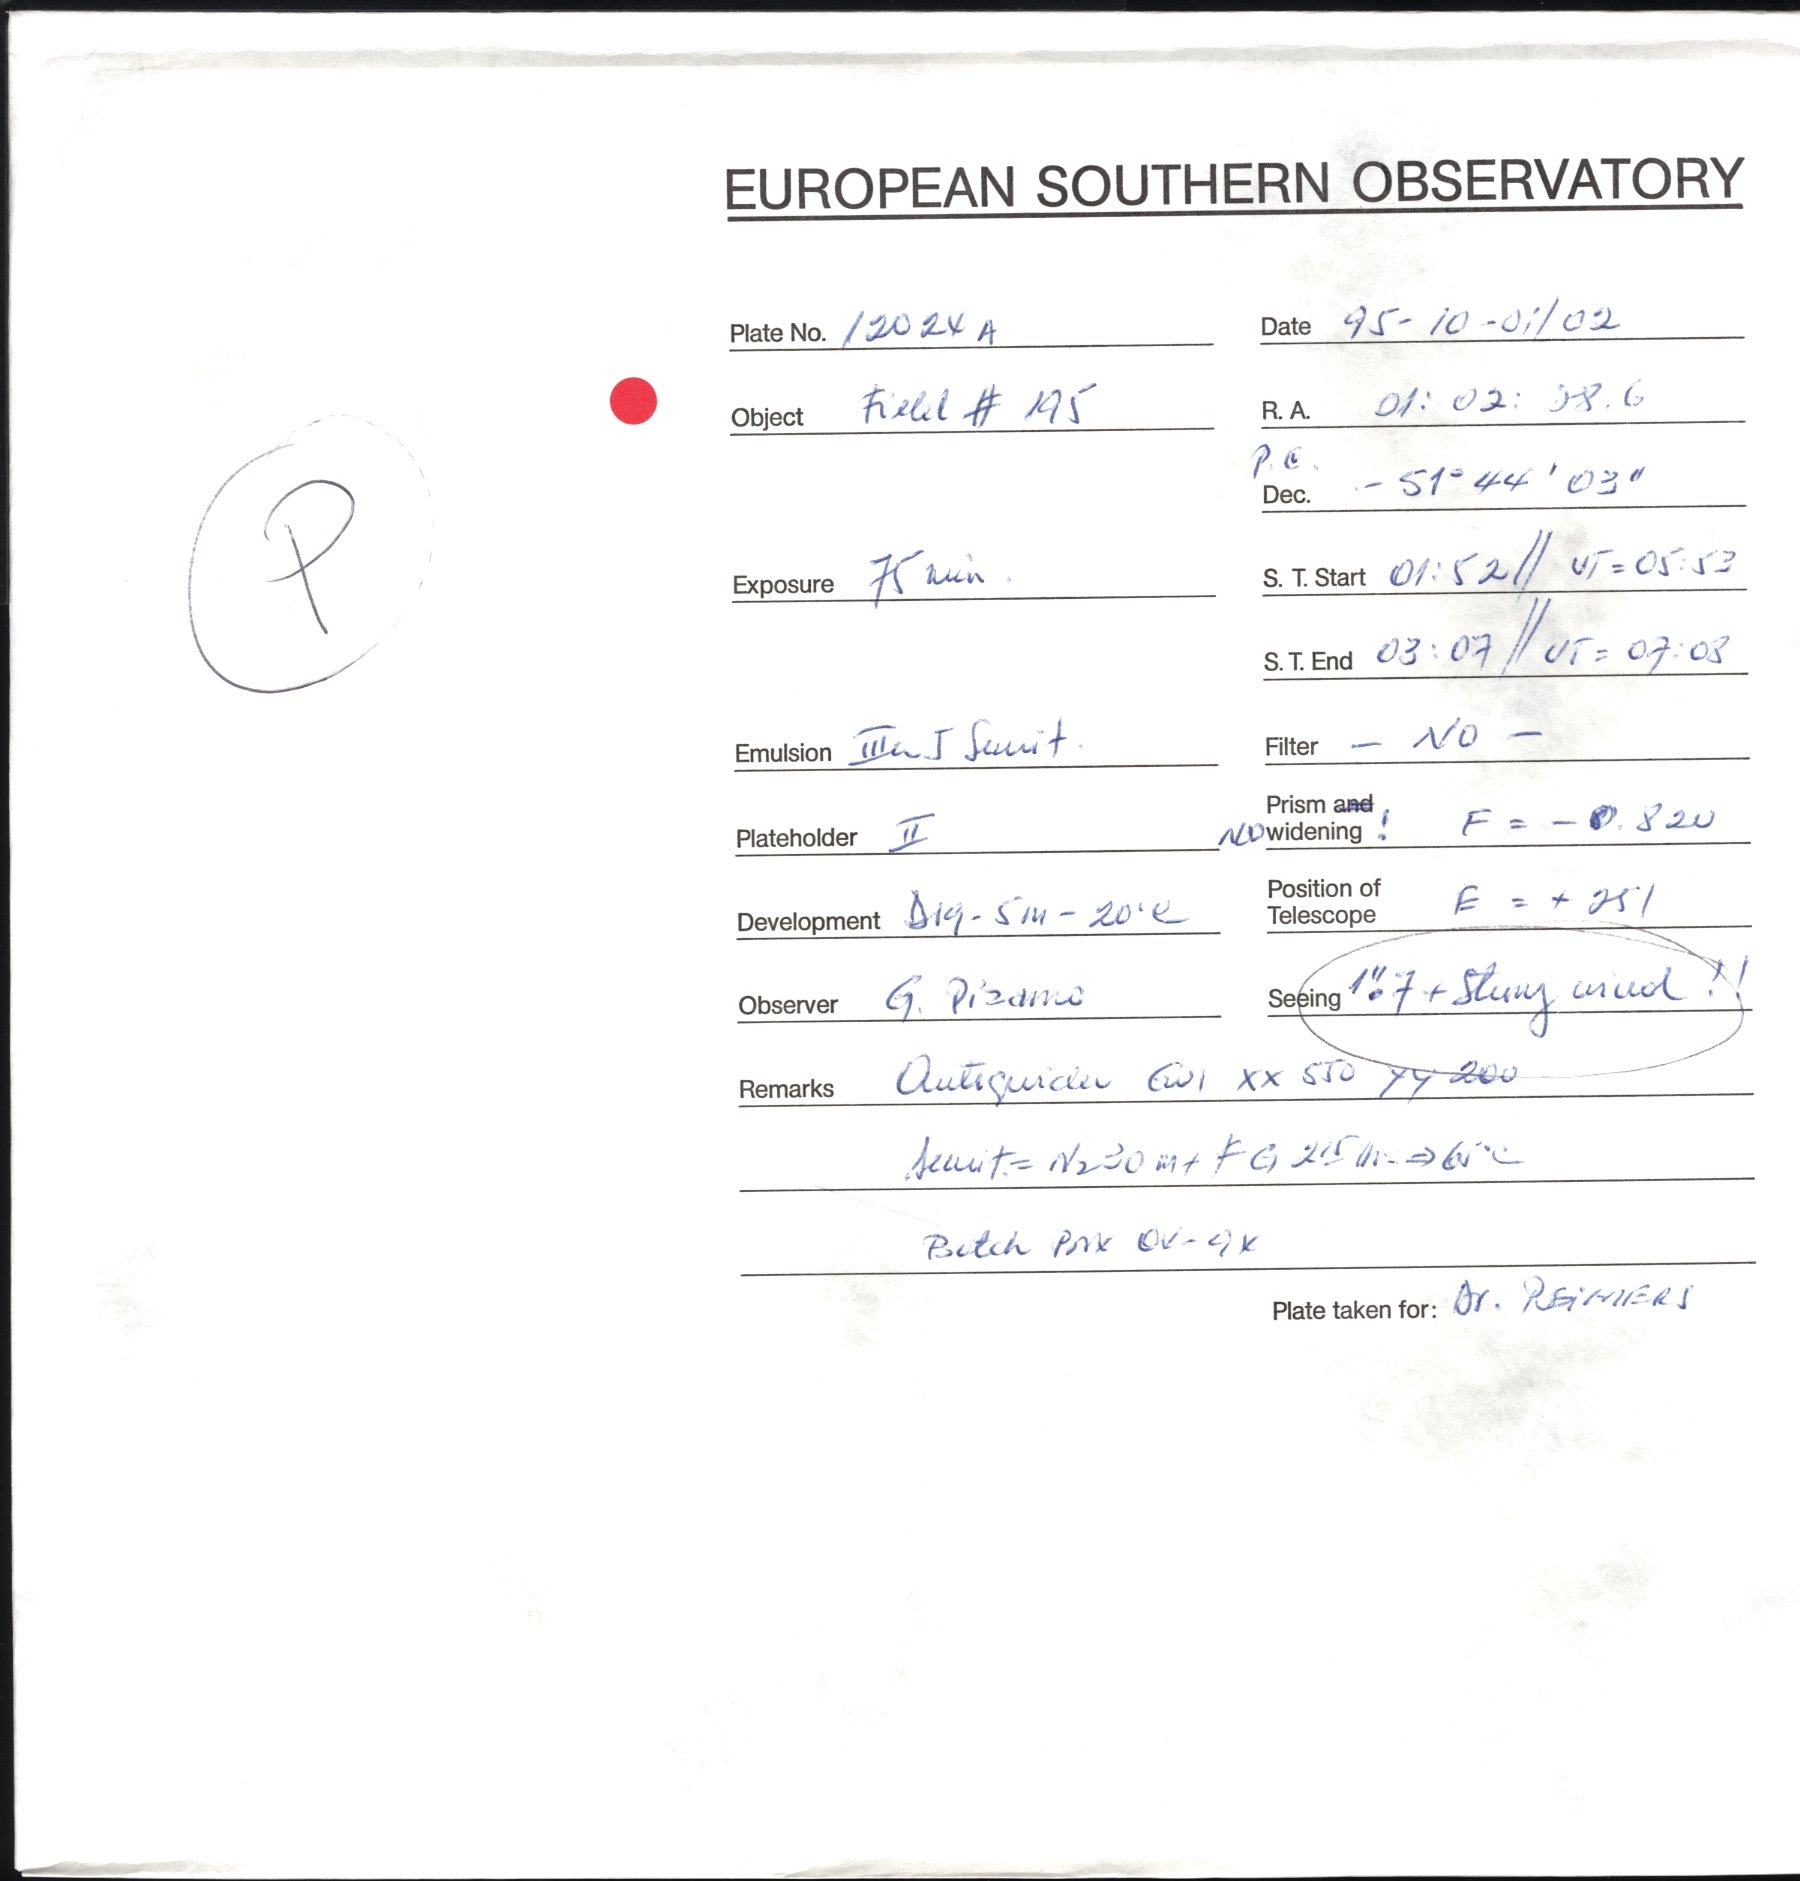 EUROPEAN SOUTHERN OBSERVATORY
Plate No. 12024 A
Date 95-10-01/02
Object Field # 195
R. A. 01: 02: 38.6
P. C.
Dec. - 51° 44' 03"
P
Exposure 75 min.
S. T. Start 01:52 // UT = 05:53
S. T. End 03:07 // UT = 07:08
Emulsion IIIa J Sensit.
Filter - NO -
Plateholder II
Prism and
NO widening ! F = - 0.820
Development D19 - 5m - 20°C
Position of
Telescope E = + 251
Observer G. Pizarro
Seeing 1".7 + Strong wind !!
Remarks Autoguider xx 550 yy 200
Sensit = N2 30 m + F G 215 m. → 65°C
Batch
Plate taken for: Dr. REIMERS